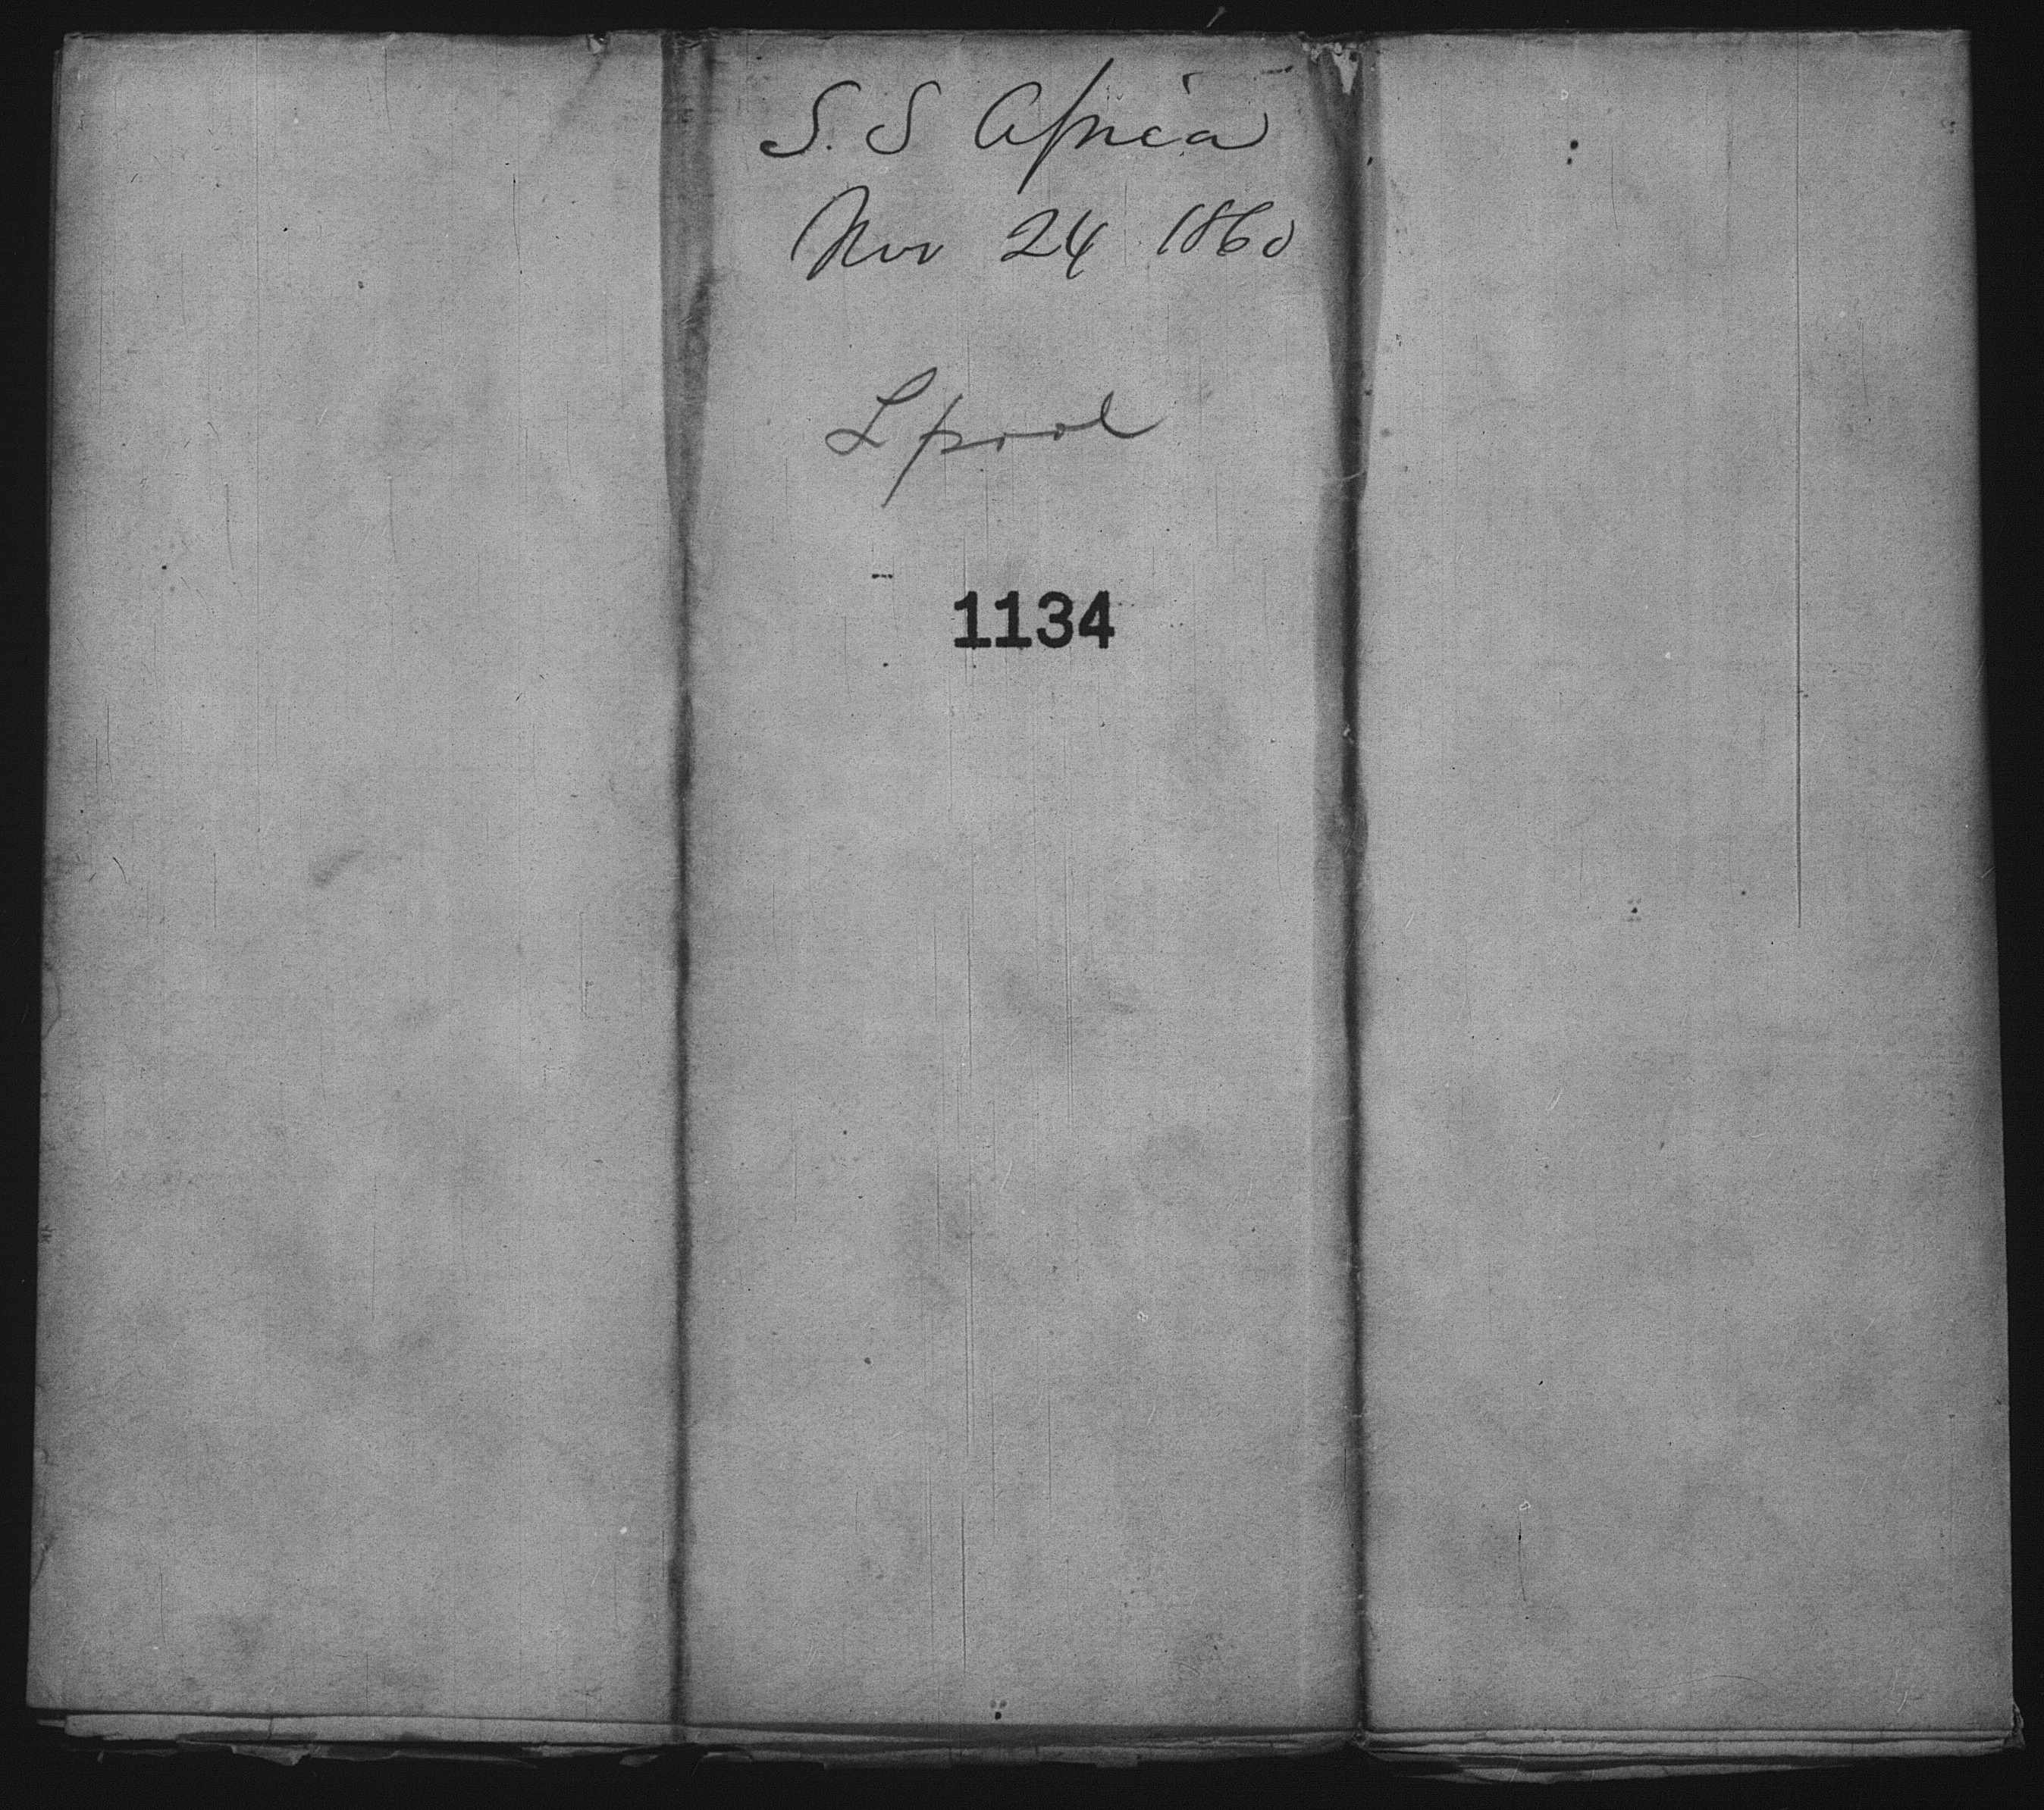 S. S Africa
Nov 24 1860
Lpool
1134